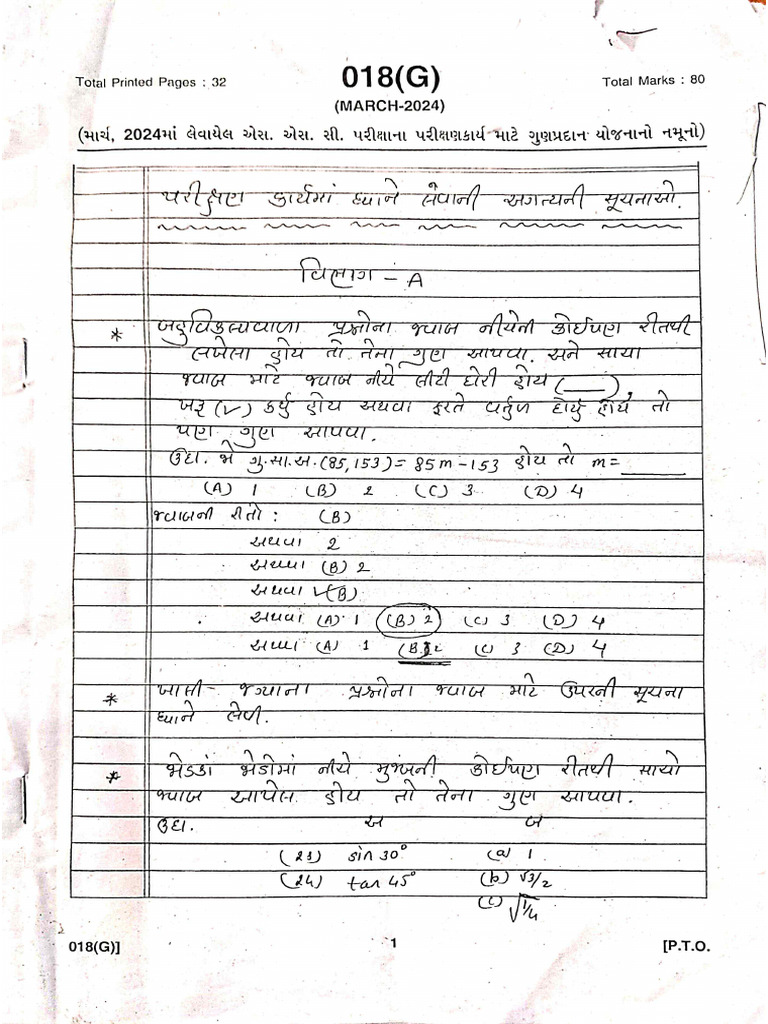 Total Printed Pages : 32
018(G)
Total Marks : 80
(MARCH-2024)
(માર્ચ, 2024માં લેવાયેલ એસ. એસ. સી. પરીક્ષાના પરીક્ષણકાર્ય માટે ગુણપ્રદાન યોજનાનો નમૂનો)
પરીક્ષણ કાર્યમાં ધ્યાને લેવાની અગત્યની સૂચનાઓ.
વિભાગ - A
* બહુવિકલ્પવાળા પ્રશ્નોના જવાબ નીચેની કોઈપણ રીતથી
લખેલા હોય તો તેના ગુણ આપવા. અને સાચા
જવાબ માટે જવાબ નીચે લીટી દોરી હોય (___),
ખરૂ (✓) કર્યુ હોય અથવા ફરતે વર્તુળ દોર્યુ હોય તો
પણ ગુણ આપવા.
ઉદા. જો ગુ.સા.અ.(85,153) = 85m - 153 હોય તો m = ____
(A) 1 (B) 2 (C) 3 (D) 4
જવાબની રીતો : (B)
અથવા 2
અથવા (B) 2
અથવા ✓(B)
અથવા (A) 1 (B) 2 (C) 3 (D) 4
અથવા (A) 1 (B) 2 (C) 3 (D) 4
* ખાલી જગ્યાના પ્રશ્નોના જવાબ માટે ઉપરની સૂચના
ધ્યાને લેવી.
* જોડકાં જોડોમાં નીચે મુજબની કોઈપણ રીતથી સાચો
જવાબ આપેલ હોય તો તેના ગુણ આપવા.
ઉદા. અ બ
(23) sin 30° (a) 1
(24) tan 45° (b) √3/2
(c) √1/4
018(G)]
1
[P.T.O.